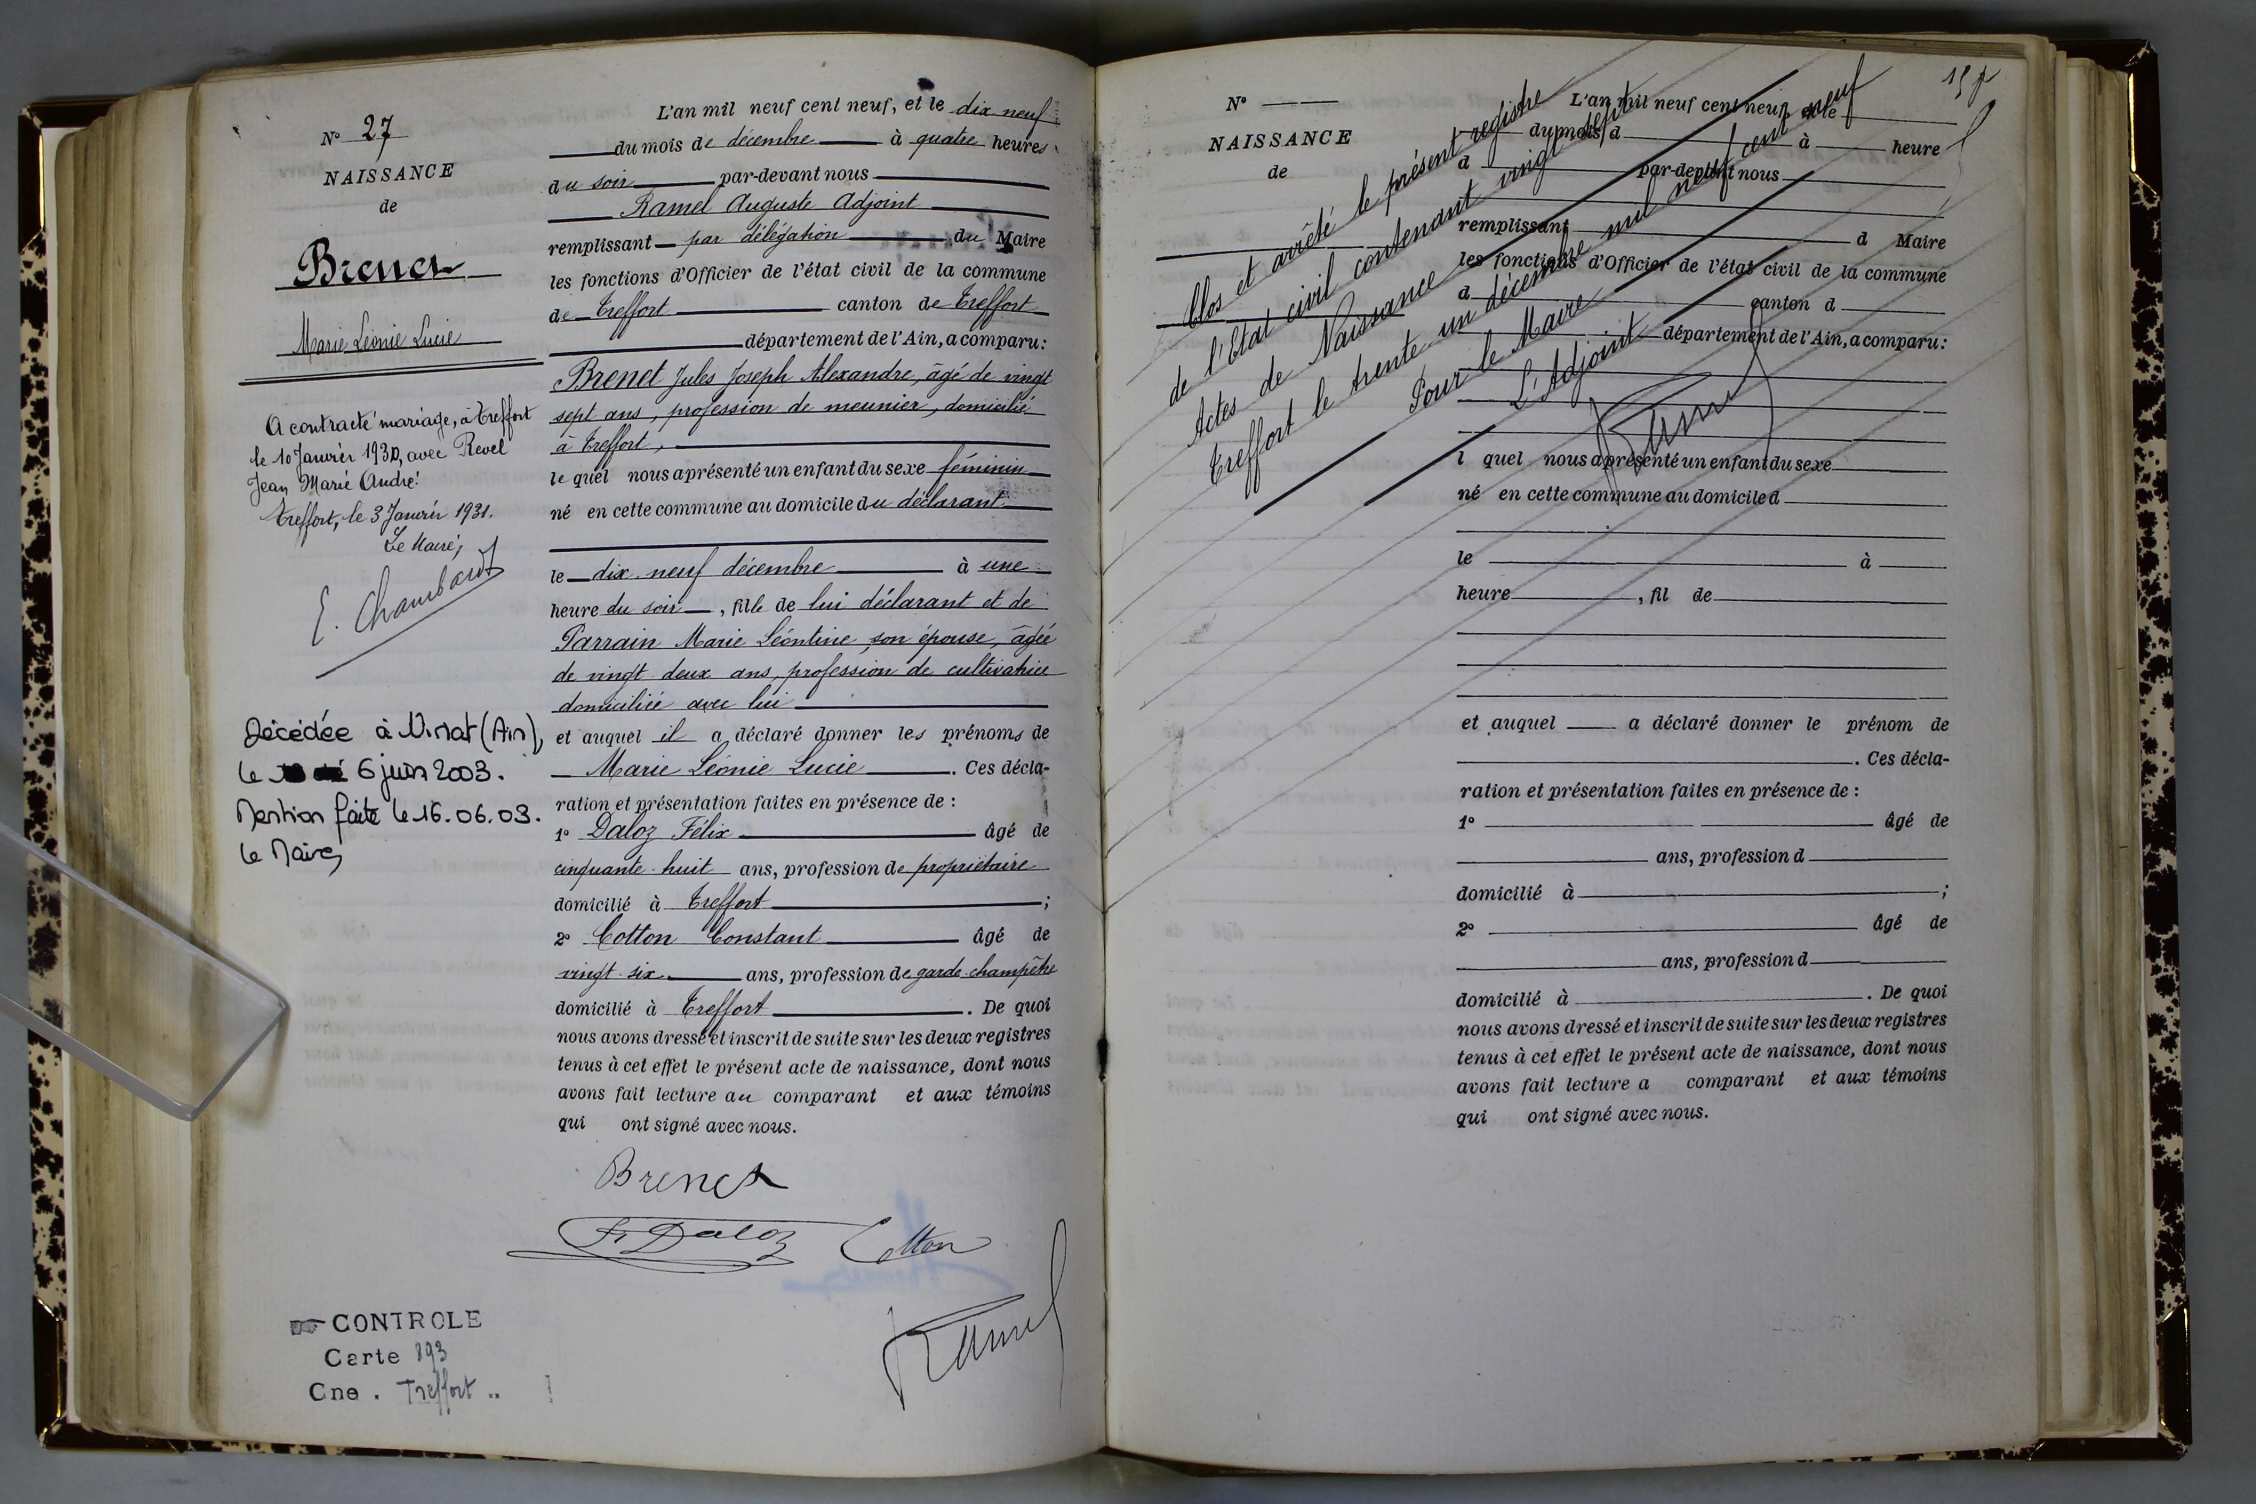 N° 27
NAISSANCE
de
Brenet
Marie Léonie Lucie
A contracté mariage, à Treffort
le 10 Janvier 1930, avec Revel
Jean Marie André
Treffort, le 3 Janvier 1931.
Le Maire,
E. Chambard
Décédée à Viriat (Ain),
le 6 juin 2003.
Mention faite le 16.06.03.
Le Maire,
CONTROLE
Carte 893
Cne . Treffort ..
L'an mil neuf cent neuf, et le dix neuf
du mois de décembre à quatre heures
du soir par-devant nous
Ramel Auguste Adjoint
remplissant par délégation du Maire
les fonctions d'Officier de l'état civil de la commune
de Treffort canton de Treffort
département de l'Ain, a comparu :
Brenet Jules Joseph Alexandre, âgé de vingt
sept ans, profession de meunier, domicilié
à Treffort,
le quel nous a présenté un enfant du sexe féminin
né en cette commune au domicile du déclarant
le dix-neuf décembre à une
heure du soir, fille de lui déclarant et de
Parrain Marie Léontine, son épouse, âgée
de vingt-deux ans, profession de cultivatrice
domiciliée avec lui
et auquel il a déclaré donner les prénoms de
Marie Léonie Lucie. Ces décla-
ration et présentation faites en présence de :
1° Daloz Félix âgé de
cinquante-huit ans, profession de propriétaire
domicilié à Treffort ;
2° Cotton Constant âgé de
vingt-six ans, profession de garde-champêtre
domicilié à Treffort . De quoi
nous avons dressé et inscrit de suite sur les deux registres
tenus à cet effet le présent acte de naissance, dont nous
avons fait lecture au comparant et aux témoins
qui ont signé avec nous.
Brenet
F. Daloz Cotton
Ramel
N°
NAISSANCE
de
L'an mil neuf cent neuf, et le
du mois d à heure
d par-devant nous
remplissant d Maire
les fonctions d'Officier de l'état civil de la commune
d canton d
département de l'Ain, a comparu :
l quel nous a présenté un enfant du sexe
né en cette commune au domicile d
le à
heure , fil de
et auquel a déclaré donner le prénom de
. Ces décla-
ration et présentation faites en présence de :
1° âgé de
ans, profession d
domicilié à ;
2° âgé de
ans, profession d
domicilié à . De quoi
nous avons dressé et inscrit de suite sur les deux registres
tenus à cet effet le présent acte de naissance, dont nous
avons fait lecture a comparant et aux témoins
qui ont signé avec nous.
Clos et arrêté le présent registre
de l'Etat civil contenant vingt sept
Actes de Naissance
Treffort le trente un décembre mil neuf cent neuf
Pour le Maire
L'Adjoint
Ramel